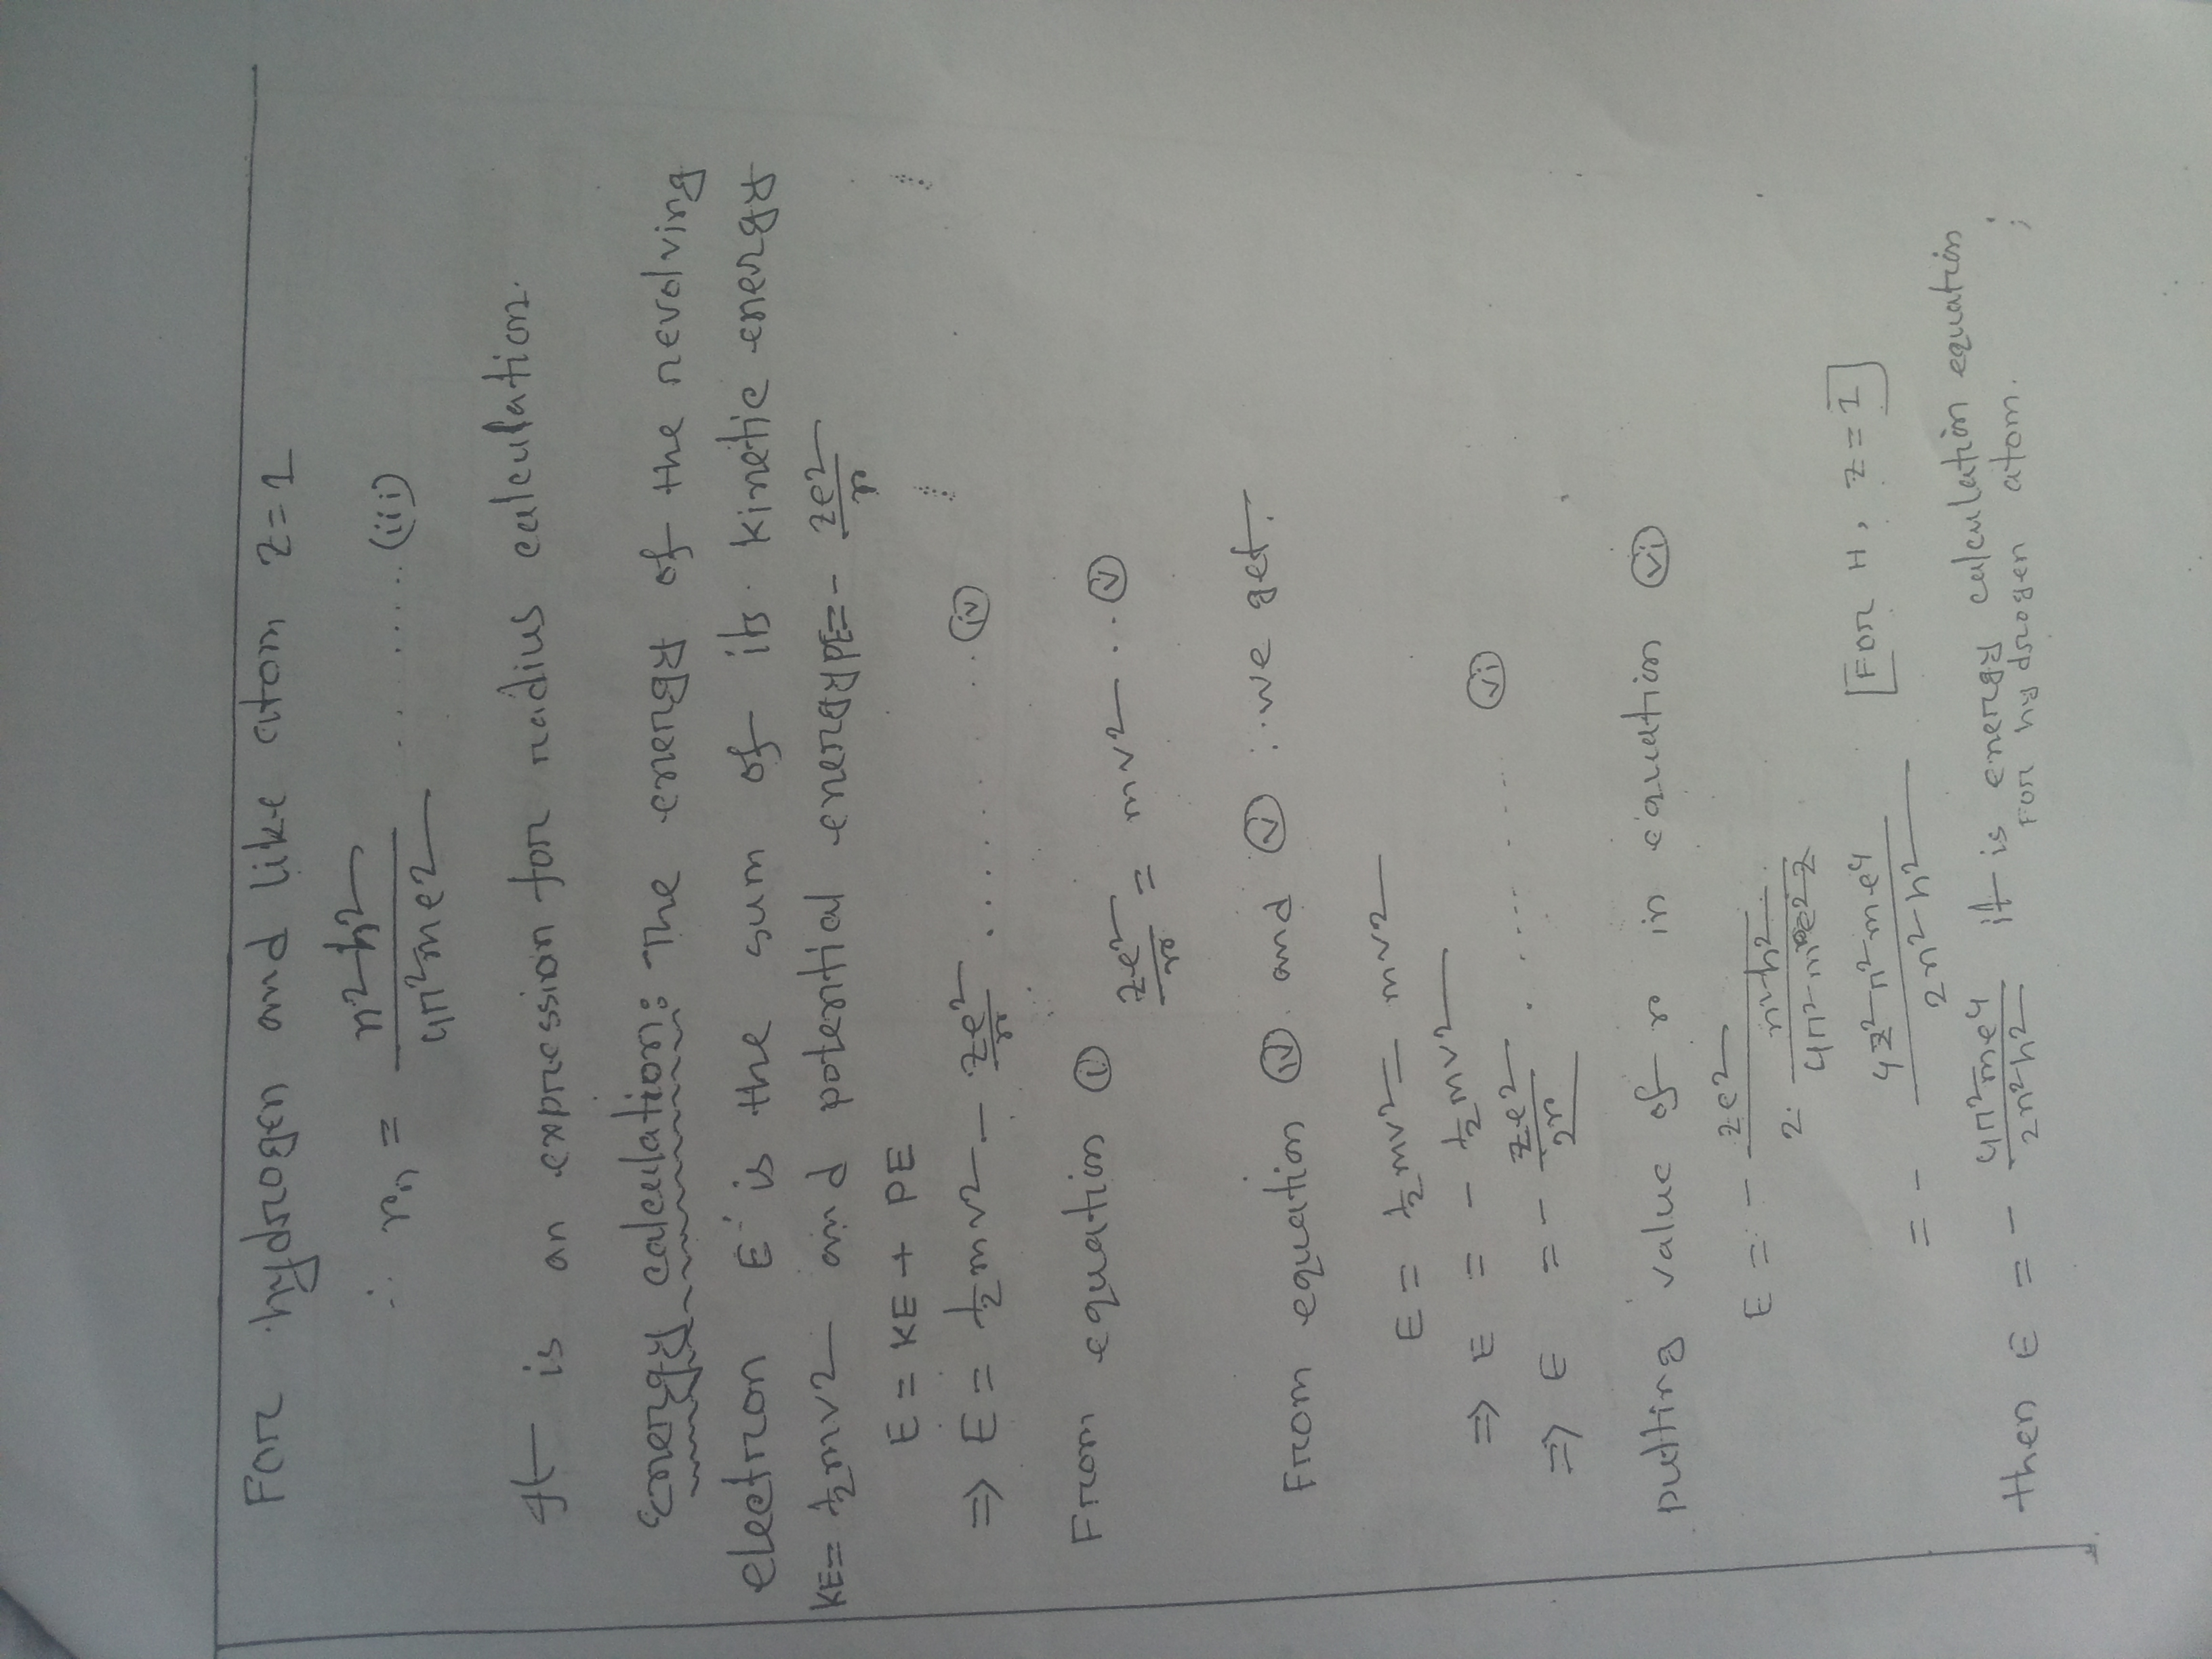 For hydrogen and like atom z=1
∴ rn = n²h² / 4π²me² .......... (iii)
It is an expression for radius calculation.
Energy calculation: The energy of the revolving
electron E is the sum of its kinetic energy
KE= ½mv² and potential energy PE= - ze²/r
E = KE + PE
⇒ E = ½mv² - ze²/r .......... (iv)
From equation (i)
ze²/r = mv² ... (v)
From equation (iv) and (v) : we get.
E = ½mv² = mv²
⇒ E = - ½mv²
⇒ E = - ze²/2r .......... (vi)
putting value of r in equation (vi)
E = - ze² / 2. n²h² / 4π²me²z
= - 4z²π²me⁴ / 2n²h² [For H, z=1]
then E = - 4π²me⁴ / 2n²h² it is energy calculation equation
For hydrogen atom.